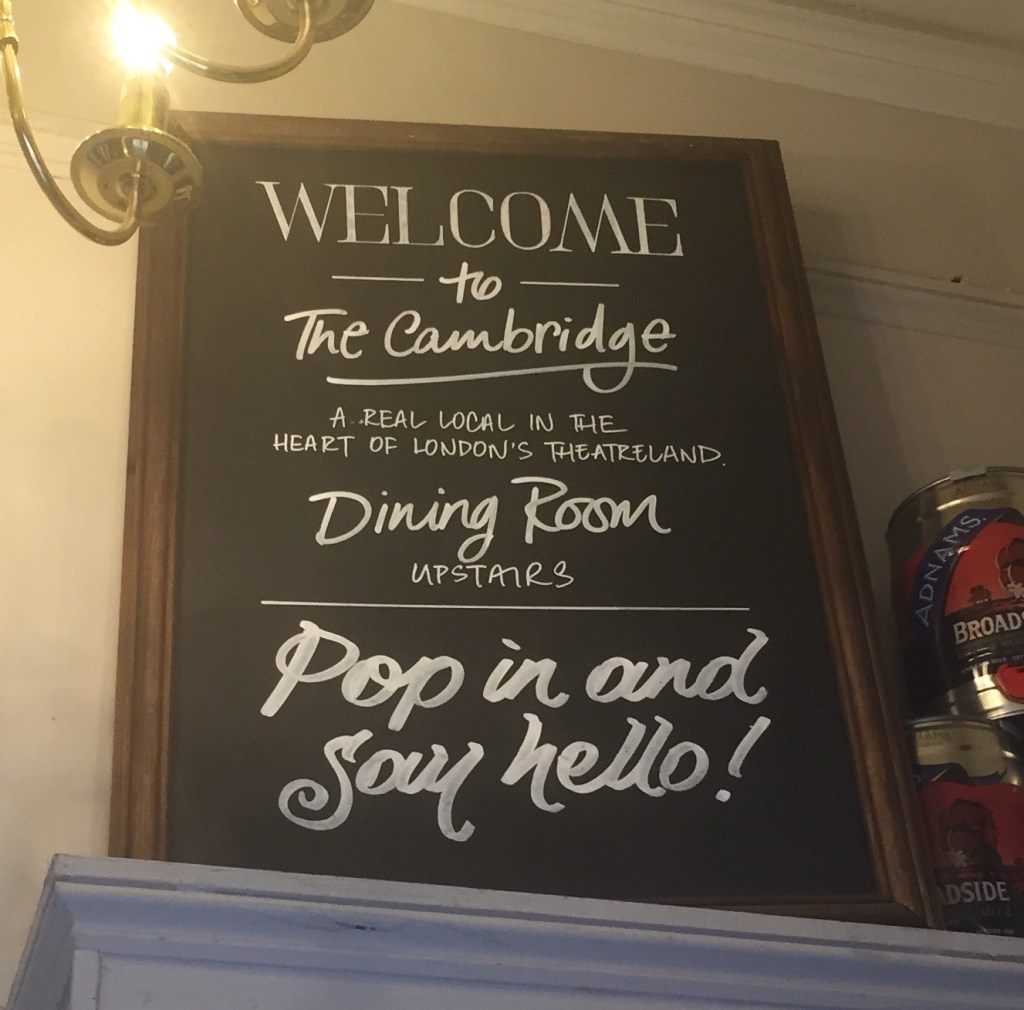 WELCOME
to
The Cambridge
A REAL LOCAL IN THE
HEART OF LONDON'S THEATRELAND.
Dining Room
UPSTAIRS
Pop in and
say hello!
ADNAMS
BROADS
ADSIDE